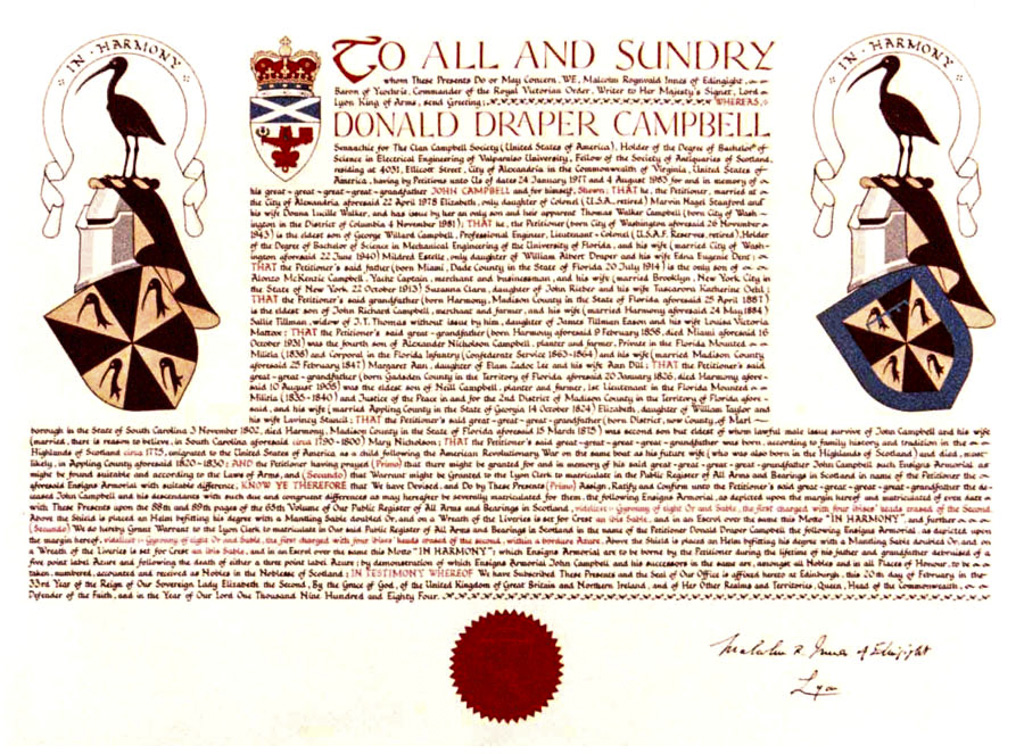 IN · HARMONY
IN · HARMONY
TO ALL AND SUNDRY
whom These Presents Do or May Concern, WE, Malcolm Rognvald Innes of Edingight,
Baron of Yeochrie, Commander of the Royal Victorian Order, Writer to Her Majesty's Signet, Lord
Lyon King of Arms, send Greeting: WHEREAS,
DONALD DRAPER CAMPBELL
Sennachie for The Clan Campbell Society (United States of America), Holder of the Degree of Bachelor of
Science in Electrical Engineering of Valparaiso University, Fellow of the Society of Antiquaries of Scotland,
residing at 4031, Ellicott Street, City of Alexandria in the Commonwealth of Virginia, United States of
America, having by Petitions unto Us of dates 24 January 1977 and 4 August 1983 for and in memory of
his great-great-great-great-grandfather JOHN CAMPBELL and for himself, Shewn; THAT he, the Petitioner, married at
the City of Alexandria aforesaid 22 April 1978 Elizabeth, only daughter of Colonel (U.S.A., retired) Marvin Nagel Stanford and
his wife Donna Lucille Walker, and has issue by her an only son and heir apparent Thomas Walker Campbell (born City of Wash-
ington in the District of Columbia 4 November 1981); THAT he, the Petitioner (born City of Washington aforesaid 26 November
1943) is the eldest son of George Willard Campbell, Professional Engineer, Lieutenant-Colonel (U.S.A.F. Reserves, retired), Holder
of the Degree of Bachelor of Science in Mechanical Engineering of the University of Florida, and his wife (married City of Wash-
ington aforesaid 22 June 1940) Mildred Estelle, only daughter of William Albert Draper and his wife Edna Eugenie Dent;
THAT the Petitioner's said father (born Miami, Dade County in the State of Florida 20 July 1914) is the only son of
Alonzo McKenzie Campbell, Yacht Captain, merchant and businessman, and his wife (married Brooklyn, New York City in
the State of New York 22 October 1913) Suzanna Clara, daughter of John Rieber and his wife Tuscarora Katherine Oehl;
THAT the Petitioner's said grandfather (born Harmony, Madison County in the State of Florida aforesaid 25 April 1887)
is the eldest son of John Richard Campbell, merchant and farmer, and his wife (married Harmony aforesaid 24 May 1884)
Sallie Tillman, widow of J.T. Thomas without issue by him, daughter of James Tillman Eason and his wife Louisa Victoria
Mattox; THAT the Petitioner's said great-grandfather (born Harmony aforesaid 9 February 1858, died Miami aforesaid 16
October 1931) was the fourth son of Alexander Nicholson Campbell, planter and farmer, Private in the Florida Mounted
Militia (1838) and Corporal in the Florida Infantry (Confederate Service 1863-1864) and his wife (married Madison County
aforesaid 25 February 1847) Margaret Ann, daughter of Elam Zadoc Lee and his wife Ann Dill; THAT the Petitioner's said
great-great-grandfather (born Gadsden County in the Territory of Florida aforesaid 20 January 1826, died Harmony afore-
said 10 August 1905) was the eldest son of Neill Campbell, planter and farmer, 1st Lieutenant in the Florida Mounted
Militia (1835-1840) and Justice of the Peace in and for the 2nd District of Madison County in the Territory of Florida afore-
said, and his wife (married Appling County in the State of Georgia 14 October 1824) Elizabeth, daughter of William Taylor and
his wife Lavinery; THAT the Petitioner's said great-great-great-grandfather (born District, now County, of Marl-
borough in the State of South Carolina 3 November 1802, died Harmony, Madison County in the State of Florida aforesaid 15 March 1875) was second son but eldest of whom lawful male issue survive of John Campbell and his wife
(married, there is reason to believe, in South Carolina aforesaid circa 1790-1800) Mary Nicholson; THAT the Petitioner's said great-great-great-great-grandfather was born, according to family history and tradition in the
Highlands of Scotland circa 1775, emigrated to the United States of America as a child following the American Revolutionary War on the same boat as his future wife (who was also born in the Highlands of Scotland) and died, most
likely, in Appling County aforesaid 1820-1830; AND the Petitioner having prayed (Primo) that there might be granted for and in memory of his said great-great-great-great-grandfather John Campbell such Ensigns Armorial as
might be found suitable and according to the Laws of Arms, and (Secundo) that Warrant might be Granted to the Lyon Clerk to matriculate in the Public Register of All Arms and Bearings in Scotland in name of the Petitioner the
aforesaid Ensigns Armorial with suitable difference, KNOW YE THEREFORE that We have Devised, and Do by These Presents (Primo) Assign, Ratify and Confirm unto the Petitioner's said great-great-great-great-grandfather the de-
ceased John Campbell and his descendants with such due and congruent differences as may hereafter be severally matriculated for them, the following Ensigns Armorial, as depicted upon the margin hereof and matriculated of even date
with These Presents upon the 88th and 89th pages of the 65th Volume of Our Public Register of All Arms and Bearings in Scotland, videlicet:- Gyronny of eight Or and Sable, the first charged with four ibises' heads erased of the Second.
Above the Shield is placed an Helm befitting his degree with a Mantling Sable doubled Or, and on a Wreath of the Liveries is set for Crest an ibis Sable, and in an Escrol over the same this Motto "IN HARMONY", and further
(Secundo) We do hereby Grant Warrant to the Lyon Clerk to matriculate in Our said Public Register of All Arms and Bearings in Scotland in name of the Petitioner Donald Draper Campbell the following Ensigns Armorial, as depicted upon
the margin hereof, videlicet:- Gyronny of eight Or and Sable, the first charged with four ibises' heads erased of the second, within a bordure Azure. Above the Shield is placed an Helm befitting his degree with a Mantling Sable doubled Or, and on
a Wreath of the Liveries is set for Crest an ibis Sable, and in an Escrol over the same this Motto "IN HARMONY"; which Ensigns Armorial are to be borne by the Petitioner during the lifetime of his father and grandfather debruised of a
five point label Azure and following the death of either a three point label Azure; by demonstration of which Ensigns Armorial John Campbell and his successors in the same are, amongst all Nobles and in all Places of Honour, to be
taken, numbered, accounted and received as Nobles in the Noblesse of Scotland; IN TESTIMONY WHEREOF We have Subscribed These Presents and the Seal of Our Office is affixed hereto at Edinburgh, this 20th day of February in the
33rd Year of the Reign of Our Sovereign Lady Elizabeth the Second, By the Grace of God, of the United Kingdom of Great Britain and Northern Ireland, and of Her Other Realms and Territories, Queen, Head of the Commonwealth,
Defender of the Faith, and in the Year of Our Lord One Thousand Nine Hundred and Eighty Four.
Malcolm R. Innes of Edingight
Lyon